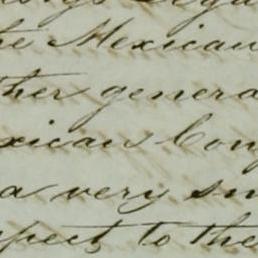 he Mexican
ther genera
xican Con
a very sm
spect to the